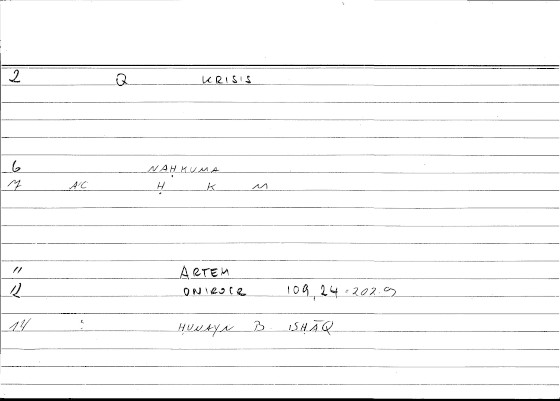 2 Q KRISIS
6 NAḤKUMA
7 A/C Ḥ K M
11 ARTEM
12 ONIROCR 109, 24 = 202.9
14 : ḤUNAYN B ISḤĀQ